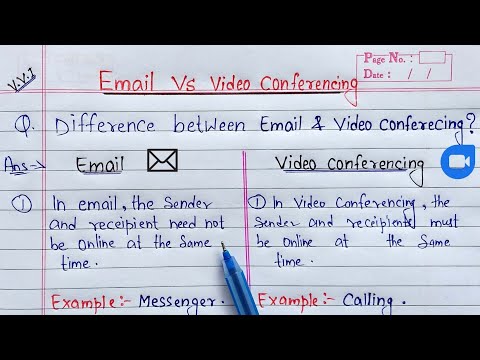 V.V.I
Page No. :
Date : / /
Email Vs Video Conferencing
Q. Difference between Email & Video Conferecing?
Ans:→ Email
Video Conferencing
① In email, the Sender
and receipient need not
be online at the Same
time.
Example:- Messenger.
① In Video Conferencing, the
Sender and receipients must
be Online at the Same
time.
Example:- Calling.